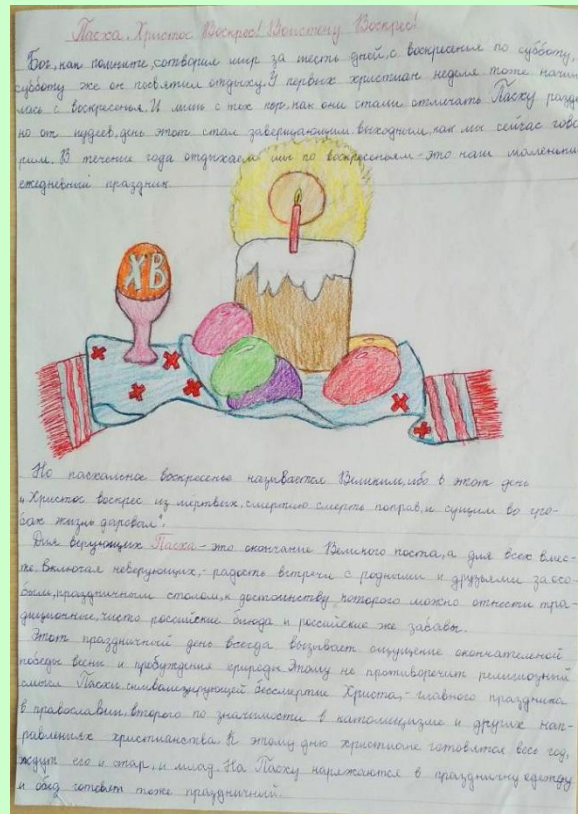 Пасха. Христос Воскрес! Воистену Воскрес!
Бог, как помните, сотворил мир за шесть дней, с воскресенья по субботу,
субботу же он посвятил отдыху. У первых христиан неделя тоже начи
лась с воскресенья. И лишь с тех пор, как они стали отмечать Пасху разде
но от иудеев, день этот стал завершающим, выходным, как мы сейчас гово
рим. В течение года отдыхаем мы по воскресеньям - это наш маленьки
ежедневный праздник.
ХВ
Но пасхальное воскресенье называется Великим, ибо в этот день
„Христос воскрес из мёртвых, смертию смерть поправ, и сущим во гро-
бах жизнь даровал".
Для верующих Пасха - это окончание Великого поста, а для всех вмес-
те, включая неверующих, - радость встречи с родными и друзьями за осо-
бым, праздничным столом, к достоинству которого можно отнести тра-
диционные, чисто российские блюда и российские же забавы.
Этот праздничный день всегда вызывает ощущение окончательной
победы весны и пробуждения природы. Этому не противоречит религиозный
смысл Пасхи символизирующей бессмертие Христа, - главного праздника
в православии, второго по значимости в католицизме и других нап-
равлениях христианства. К этому дню христиане готовятся весь год,
ждут его и стар, и млад. На Пасху наряжаются в праздничну одежду
и обед готовят тоже праздничный.